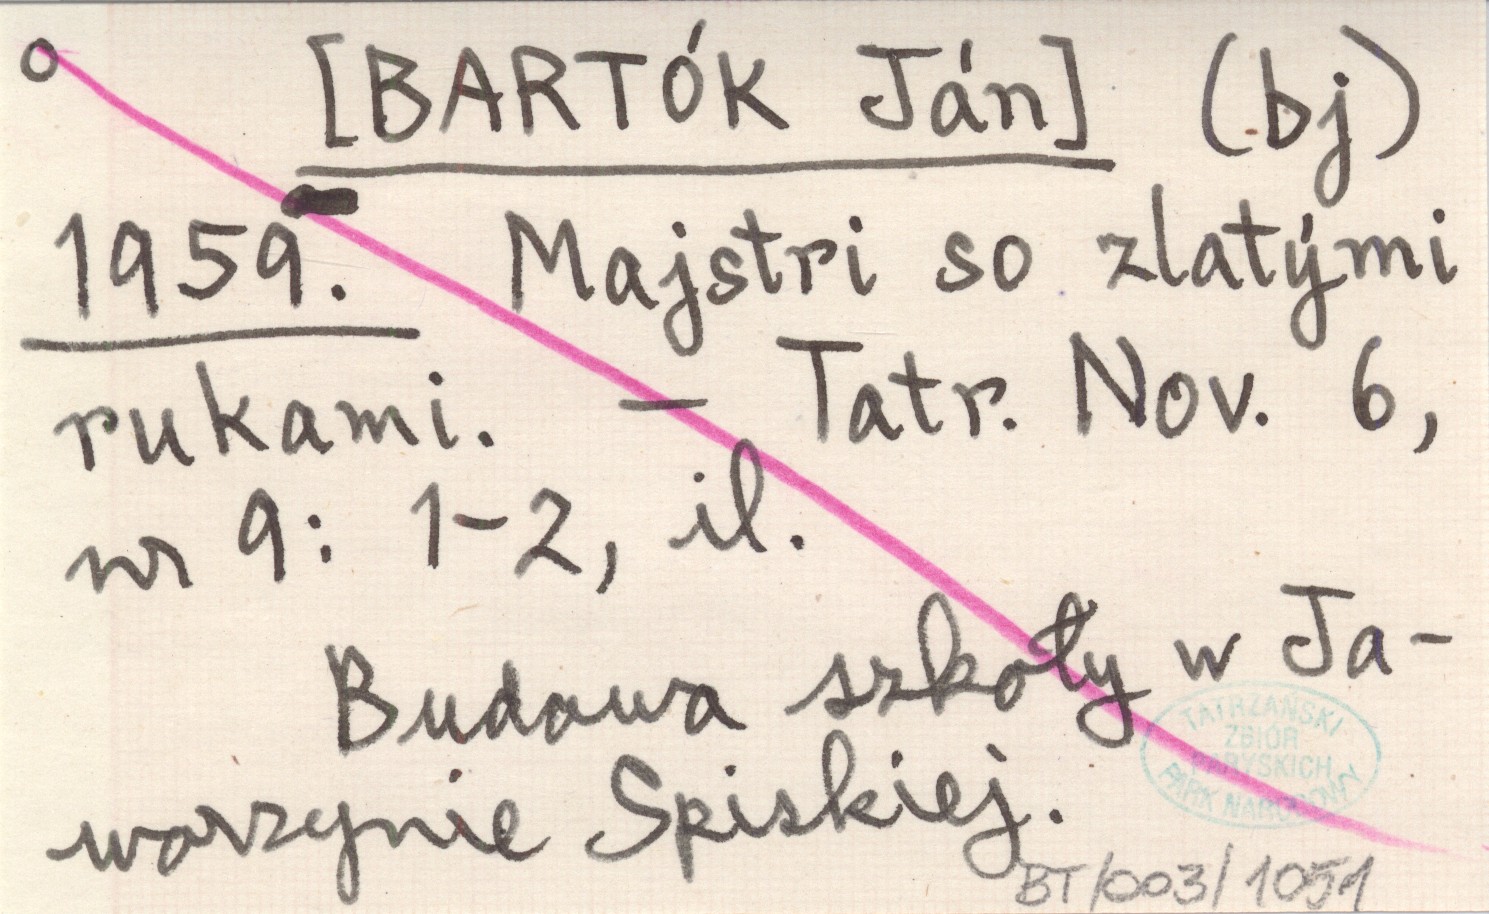 [BARTÓK Ján] (bj)
1959. Majstri so zlatými
rukami. — Tatr. Nov. 6,
nr 9: 1-2, il.
Budowa szkoły w Ja-
worzynie Spiskiej.
TATRZAŃSKI
ZBIÓR
PARYSKICH
PARK NARODOWY
BT/003/1051